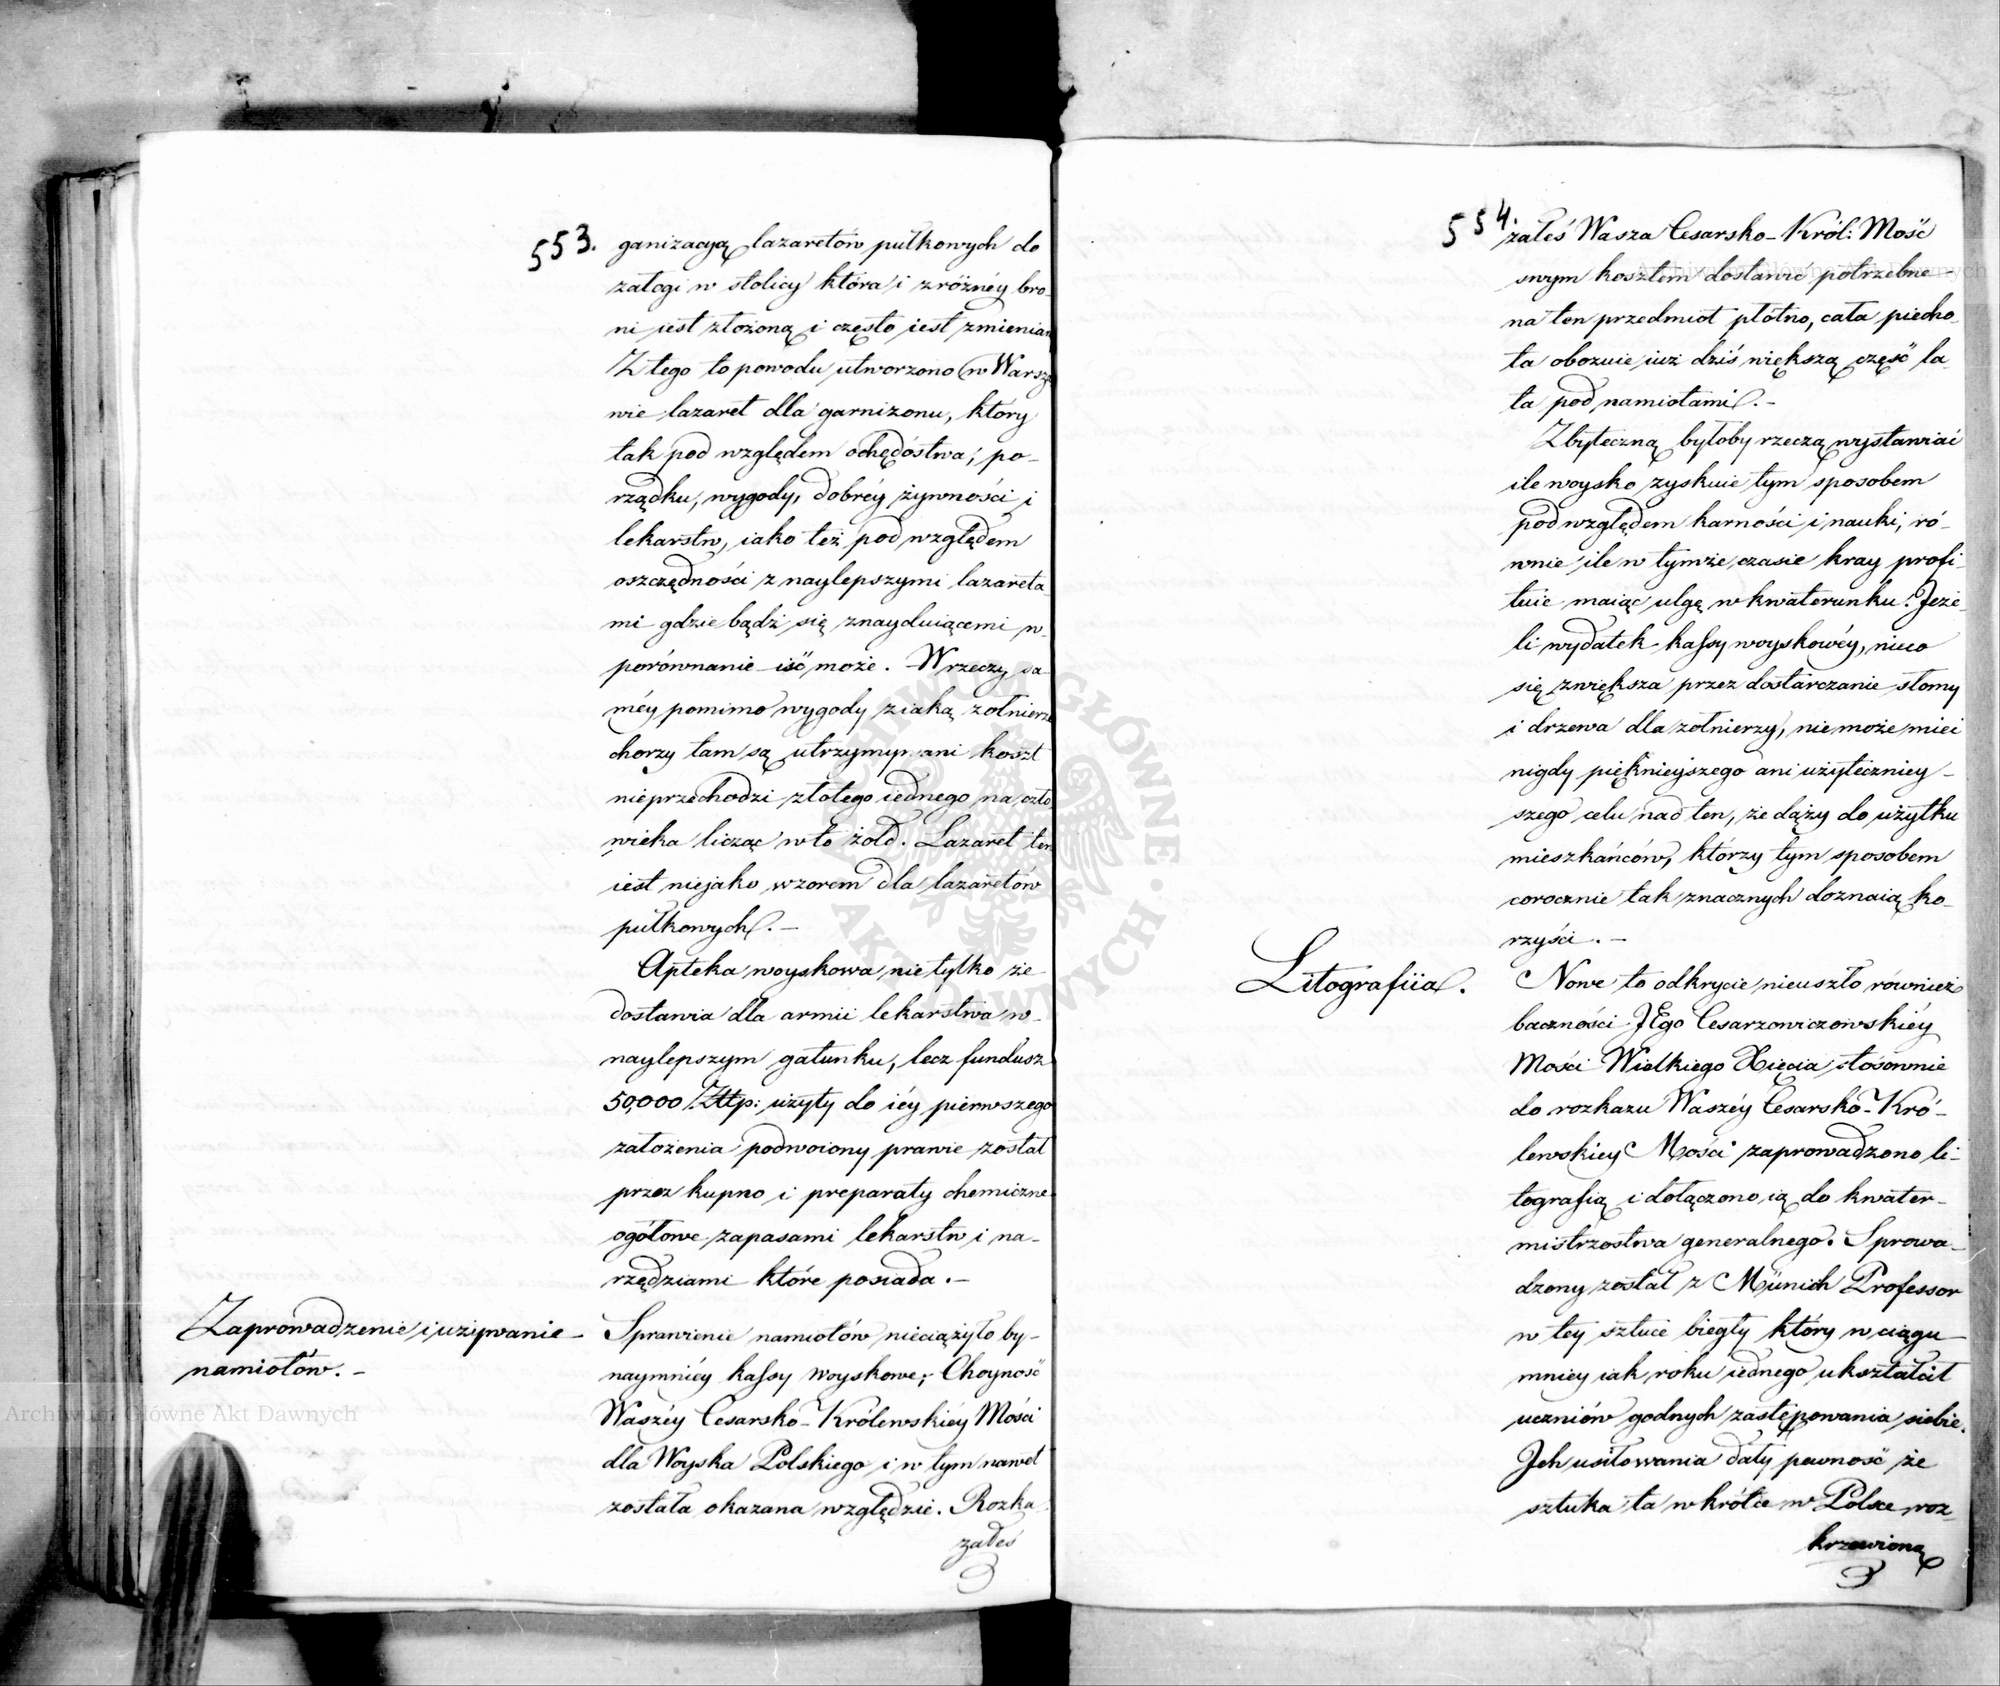 553.
ganizacyą lazaretów pułkowych do
załogi w stolicy która i z różnéy bro-
ni iest złożoną i często iest zmienian
Z tego to powodu utworzono w Warsza
wie lazaret dla garnizonu, który
tak pod względem ochędóstwa, po-
rządku, wygody, dobréy żywności i
lekarstw, iako też pod względem
oszczędności z naylepszymi lazareta
mi gdzie bądź się znayduiącemi w-
porównanie iść może. - W rzeczy sa-
méy pomimo wygody z iaką żołnierze
chorzy tam są utrzymywani koszt
nieprzechodzi złotego iednego na czło
wieka licząc w to żołd. Lazaret ten
iest niejako wzorem dla lazaretów
pułkowych. -
Apteka woyskowa nietylko że
dostawia dla armii lekarstwa w-
naylepszym gatunku, lecz fundusz
50,000 Złtp: użyty do iéy pierwszego
założenia podwoiony prawie został
przez kupno i preparaty chemiczne
ogółowe zapasami lekarstw i na-
rzędziami które posiada. -
Zaprowadzenie i używanie
namiotów. -
Sprawienie namiotów nieciążyło by-
naymniéy kassy woyskowe; Choyność
Waszéy Cesarsko-Królewskiéy Mości
dla Woyska Polskiego i w tym nawet
została okazana względzie. Rozka
załeś
554.
załeś Wasza Cesarsko-Król: Mość
swym kosztem dostawić potrzebne -
na ten przedmiot płótno, cała piecho-
ta obozuie iuż dziś większą część la-
ta pod namiotami. -
Zbyteczną byłoby rzeczą wystawiać
ile woysko zyskuie tym sposobem
pod względem karności i nauki, ró-
wnie ile w tymże czasie kray profi-
tuie maiąc ulgę w kwaterunku. Jeże-
li wydatek kassy woyskowéy, nieco
się zwiększa przez dostarczanie słomy
i drzewa dla żołnierzy, niemoże mieć
nigdy piękniejszego ani użyteczniey-
szego celu nad ten, że dąży do użytku
mieszkańców, którzy tym sposobem
corocznie tak znacznych doznaią ko-
rzyści. -
Litografiia.
Nowe to odkrycie nieuszło również
baczności JEgo Cesarzowiczowskiéy
Mości Wielkiego Xięcia, stosownie
do rozkazu Waszéy Cesarsko-Kró-
lewskiey Mości zaprowadzono li-
tografią i dołączono ią do kwater-
mistrzostwa generalnego. Sprowa-
dzony został z Münich Professor
w tey sztuce biegły który w ciągu
mniey iak roku iednego ukształcił
uczniów godnych zastępowania siebie.
Jch usiłowania dały pewność że
sztuka ta wkrótce w Polsce roz-
krzewioną
Archiwum Główne Akt Dawnych
ARCHIWUM GŁÓWNE AKT DAWNYCH